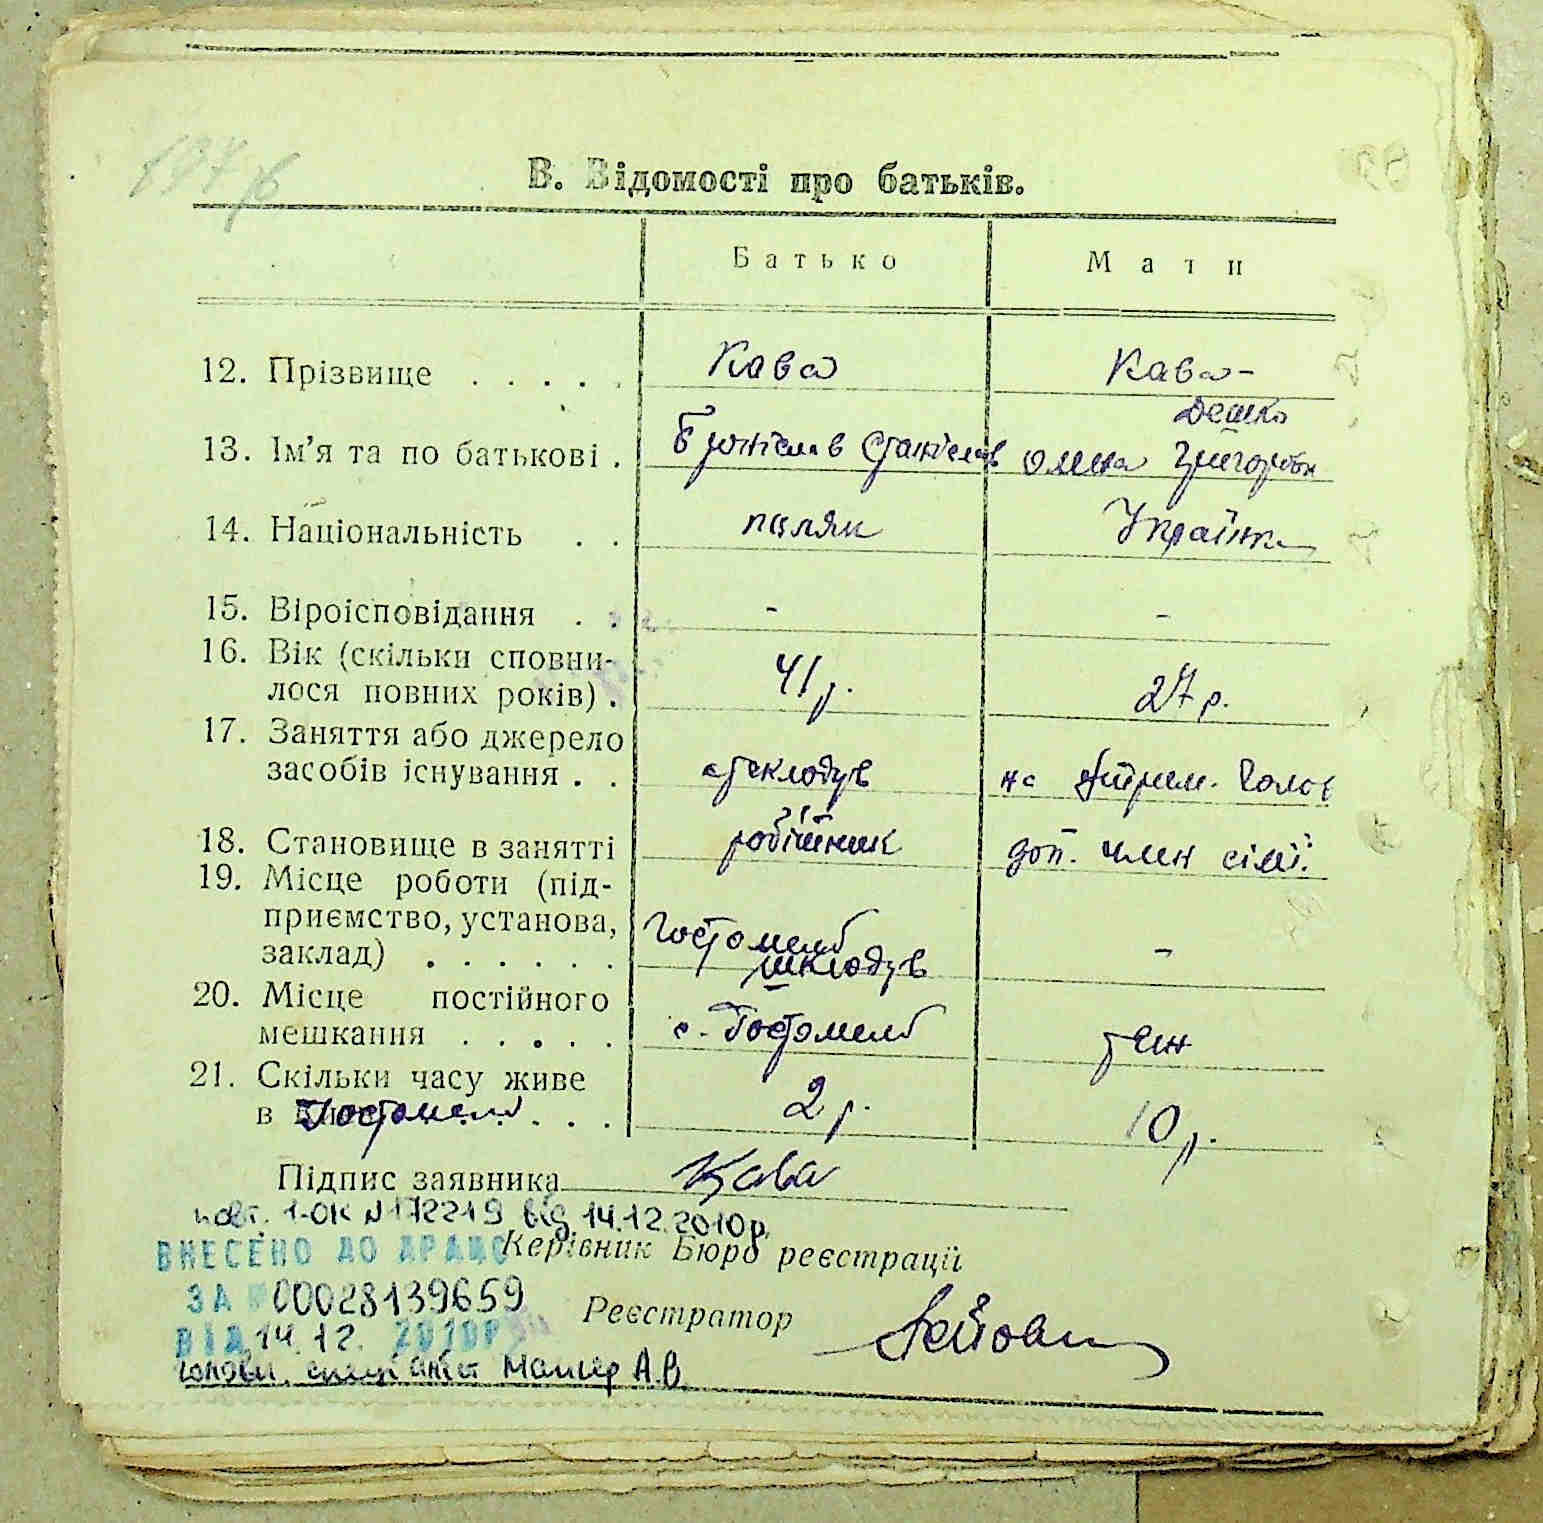 В. Відомості про батьків.
Батько Мати
12. Прізвище . . . . . Кава Кава-
Дешко
13. Ім'я та по батькові . Броніслав Станіслав Олена Григорівн
14. Національність . . поляк Українка
15. Віроісповідання . . - -
16. Вік (скільки сповни-
лося повних років) . 41 р. 27 р.
17. Заняття або джерело
засобів існування . . склодув на утрим. чолов
18. Становище в занятті робітник доп. член сімї.
19. Місце роботи (під-
приємство, установа,
заклад) . . . . . . Гостомель -
шклодув
20. Місце постійного
мешкання . . . . . с. Гостомель теж
21. Скільки часу живе
в Гостомелі . . . 2 р. 10 р.
Підпис заявника Кава
повт. 1-ОК № 172219 від 14.12.2010р.
ВНЕСЕНО ДО ДРАЦС Керівник Бюро реєстрації
ЗА № 00028139659
Реєстратор
ВІД 14.12. 2010Р
головн. спеціаліст А.В.